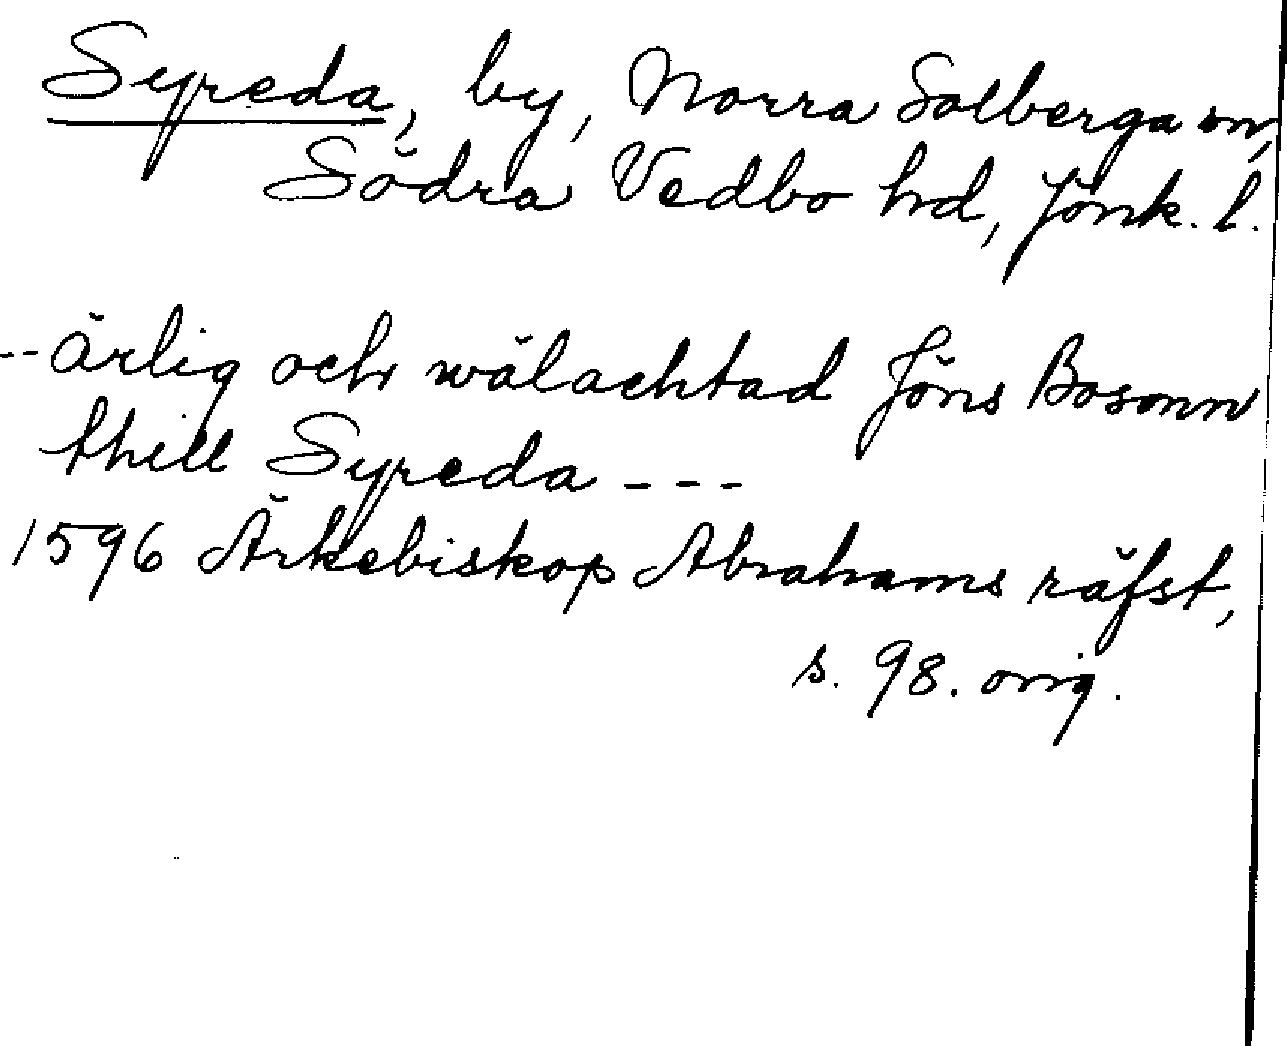 Syreda, by, Norra Solberga sn,
Södra Vedbo hd, Jönk. l.
-- ärlig och wälachtad Jöns Bosonn
thill Syreda ---
1596 Ärkebiskop Abrahams räfst,
s. 98. orig.